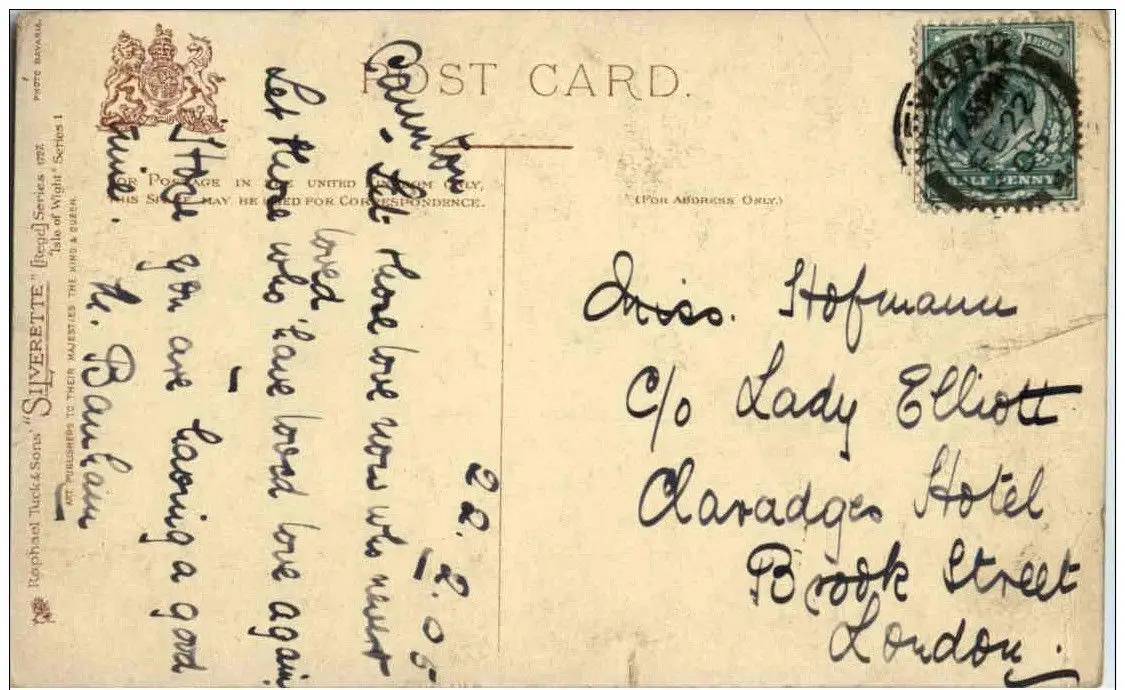 POST CARD.
FOR POSTAGE IN THE UNITED KINGDOM ONLY,
THIS SPACE MAY BE USED FOR CORRESPONDENCE.
(FOR ADDRESS ONLY.)
NEWARK
FE 22
05
HALF PENNY
22.2.05
Let those love now who never
loved
Let those who have loved love again
I Hope you are having a good
time. M. Bauhain
Miss. Hofmann
C/o Lady Elliott
Claradges Hotel
Brook Street
London.
Raphael Tuck & Sons' "SILVERETTE" [Regd] Series 1772
"Isle of Wight" Series 1
ART PUBLISHERS TO THEIR MAJESTIES THE KING & QUEEN.
PHOTO BAVARIA.